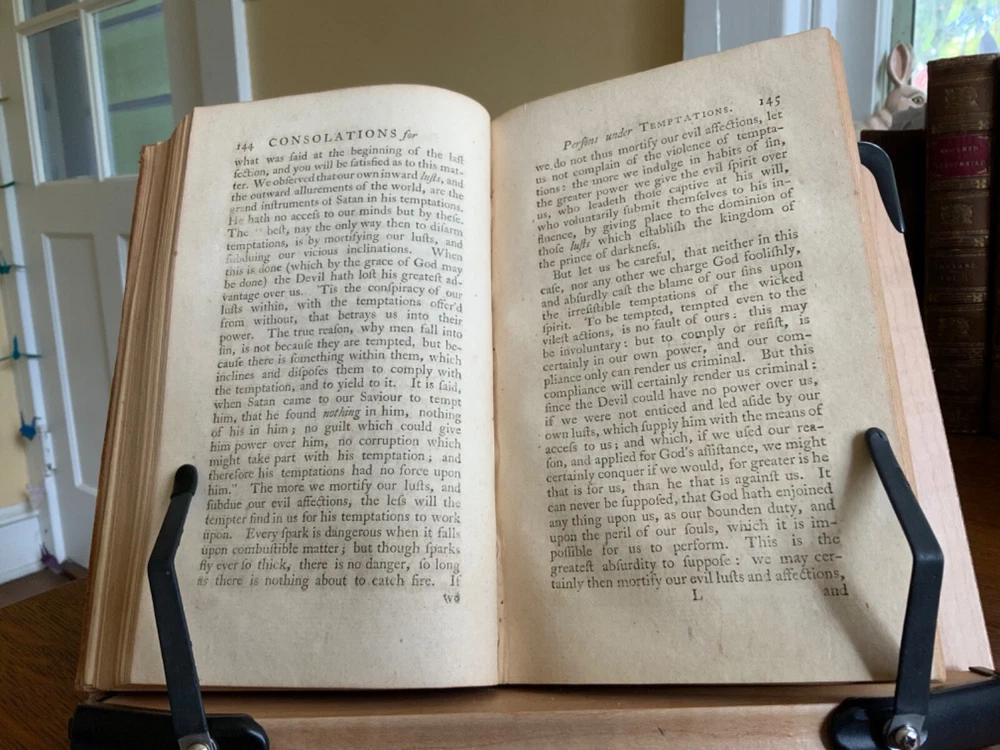 144 CONSOLATIONS for
what was ſaid at the beginning of the laſt
ſection, and you will be ſatisfied as to this mat-
ter. We obſerved that our own inward luſts, and
the outward allurements of the world, are the
grand inſtruments of Satan in his temptations.
He hath no acceſs to our minds but by theſe.
The beſt, nay the only way then to diſarm
temptations, is by mortifying our luſts, and
ſubduing our vicious inclinations. When
this is done (which by the grace of God may
be done) the Devil hath loſt his greateſt ad-
vantage over us. 'Tis the conſpiracy of our
luſts within, with the temptations offer'd
from without, that betrays us into their
power. The true reaſon, why men fall into
ſin, is not becauſe they are tempted, but be-
cauſe there is ſomething within them, which
inclines and diſpoſes them to comply with
the temptation, and to yield to it. It is ſaid,
when Satan came to our Saviour to tempt
him, that he found nothing in him, nothing
of his in him; no guilt which could give
him power over him, no corruption which
might take part with his temptation; and
therefore his temptations had no force upon
him." The more we mortify our luſts, and
ſubdue our evil affections, the leſs will the
tempter find in us for his temptations to work
upon. Every ſpark is dangerous when it falls
upon combuſtible matter; but though ſparks
fly ever ſo thick, there is no danger, ſo long
as there is nothing about to catch fire. If
we
Perſons under TEMPTATIONS. 145
we do not thus mortify our evil affections, let
us not complain of the violence of tempta-
tions: the more we indulge in habits of ſin,
the greater power we give the evil ſpirit over
us, who leadeth thoſe captive at his will,
who voluntarily ſubmit themſelves to his in-
fluence, by giving place to the dominion of
thoſe luſts which eſtabliſh the kingdom of
the prince of darkneſs.
But let us be careful, that neither in this
caſe, nor any other we charge God fooliſhly,
and abſurdly caſt the blame of our ſins upon
the irreſiſtible temptations of the wicked
ſpirit. To be tempted, tempted even to the
vileſt actions, is no fault of ours: this may
be involuntary: but to comply or reſiſt, is
certainly in our own power, and our com-
pliance only can render us criminal. But this
compliance will certainly render us criminal:
ſince the Devil could have no power over us,
if we were not enticed and led aſide by our
own luſts, which ſupply him with the means of
acceſs to us; and which, if we uſed our rea-
ſon, and applied for God's aſſiſtance, we might
certainly conquer if we would, for greater is he
that is for us, than he that is againſt us. It
can never be ſuppoſed, that God hath enjoined
any thing upon us, as our bounden duty, and
upon the peril of our ſouls, which it is im-
poſſible for us to perform. This is the
greateſt abſurdity to ſuppoſe: we may cer-
tainly then mortify our evil luſts and affections,
L and